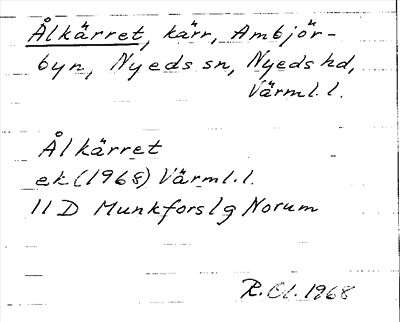 Ålkärret, kärr, Ambjör-
byn, Nyeds sn, Nyeds hd,
Värml. l.
Ålkärret
ek (1968) Värml. l.
11 D Munkfors lg Norum
R. Cl. 1968